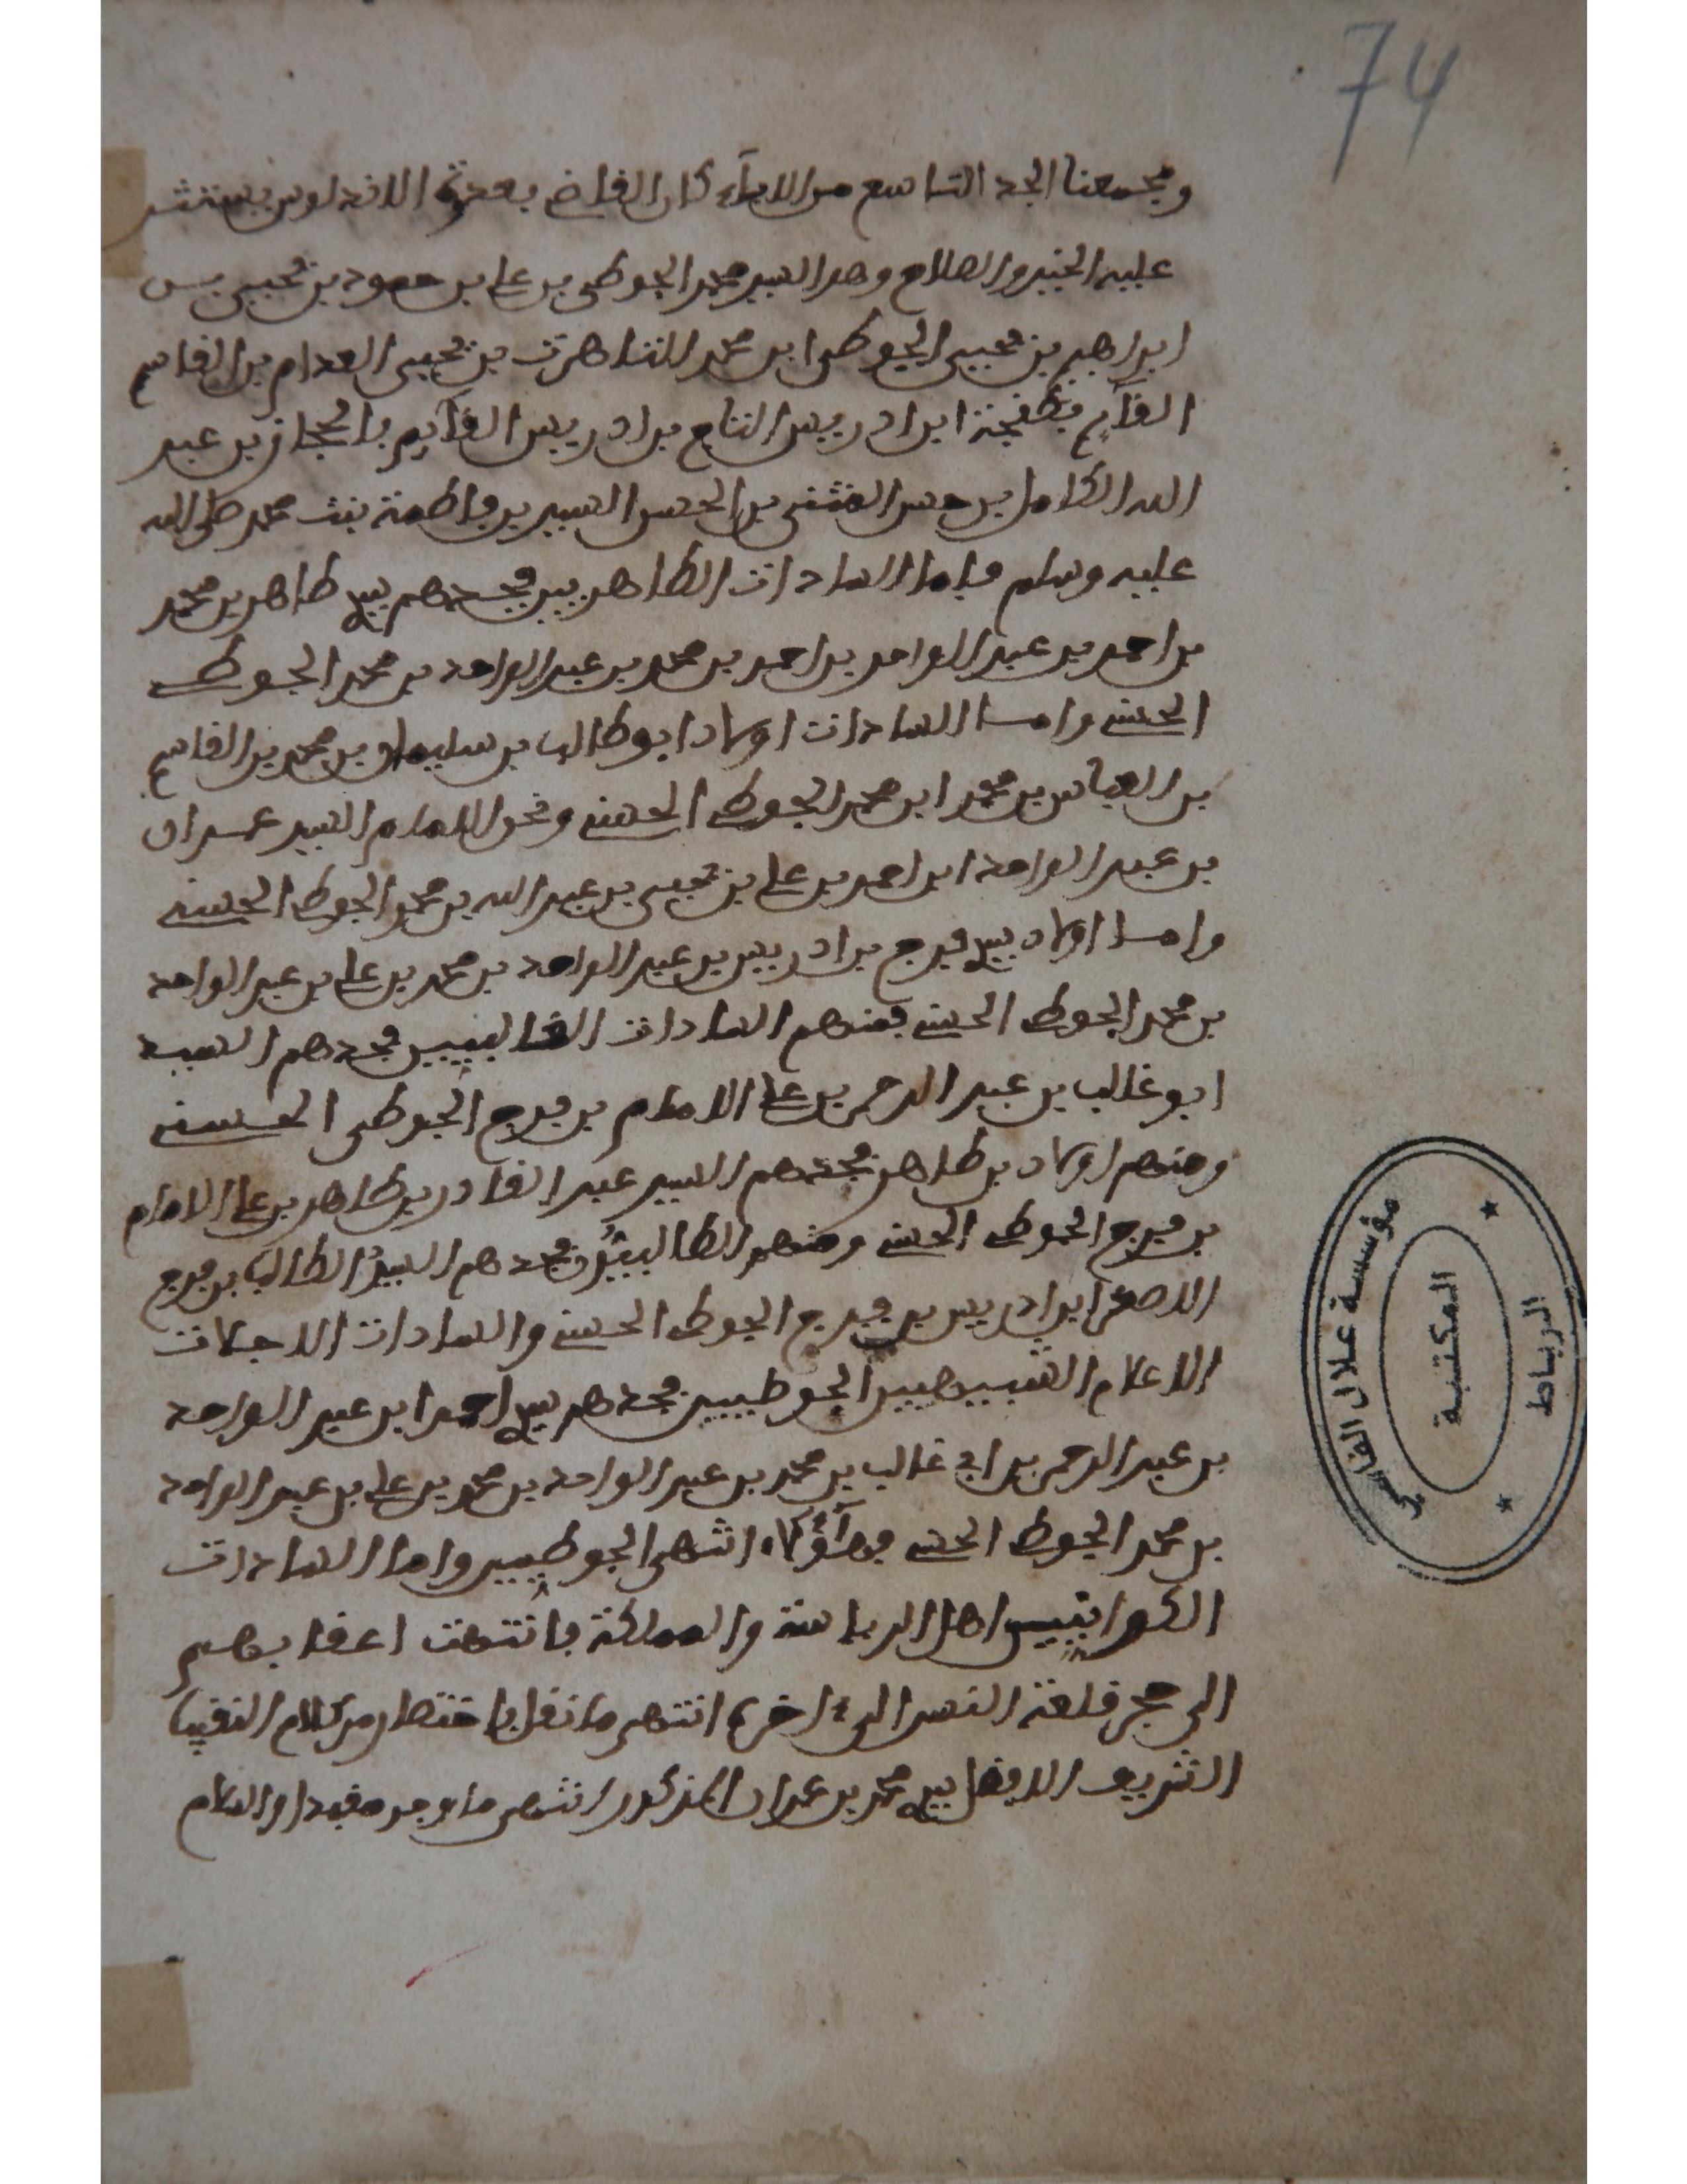 74
ومجمعنا الجد التاسع من الاباء كان القاضي بعدوة الاندلوس يستشر
عليه الخير والصلاح وهو السيد محمد الجوطي بن علي بن حمود بن يحيى بن
ابراهيم بن يحيى الجوطي ابن محمد بن يحيى العدام بن القاسم
القآئم ابن ادريس التاج بن ادريس القآيم بالحجاز بن عبد
الله الكامل بن حسن المثنى بن الحسن السبط بن فاطمة بنت محمد صلى الله
عليه وسلم فاما السادات الطاهريين فجدهم سيدي طاهر بن محمد
بن احمد بن عبد الواحد بن احمد بن محمد بن عبد الواحد بن محمد الجوطي
الحسني وامـا السادات اولاد ابو طالب بن سليمان بن محمد بن القاسم
بن العباس بن محمد ابن محمد الجوطي الحسني ونحن الامام السيد عمران
بن عبد الواحد ابن احمد بن علي بن يحيى بن عبد الله بن محمد الجوطي الحسني
وامـا اولاد سيدي فرج بن ادريس بن عبد الواحد بن محمد بن علي بن عبد الواحد
بن محمد الجوطي الحسني فمنهم السادات الغالبيين فجدهم السيد
ابو غالب بن عبد الرحمن بن علي الامام بن فرج الجوطي الحسني
ومنهم اولاد بن طاهر فجدهم السيد عبد القادر بن طاهر بن علي الامام
بن فرج الجوطي الحسني ومنهم الطالبيون فجدهم السيد الطالب بن فرج
الاصغر ابن ادريس بن فرج الجوطي الحسني والسادات الاجلات
الاعلام الشبيهيين الجوطيين فجدهم سيدي احمد ابن عبد الواحد
بن عبد الرحمن بن ابي غالب بن محمد بن عبد الواحد بن محمد بن علي بن عبد الواحد
بن محمد الجوطي الحسني فهآؤلاء انتهى الجوطيين واما السادات
اهل الرياسة والمملكة فانتهت اعقابهم
الى حجر قلعة النسر الى ءاخره انتهى ما نقل باختصار من كلام النقيب
الشريف الافضل سيدي محمد بن عمران المذكور انتهى ما وجد مقيدا والسلام
مؤسسة علال الفاسي
المكتبة
الرباط